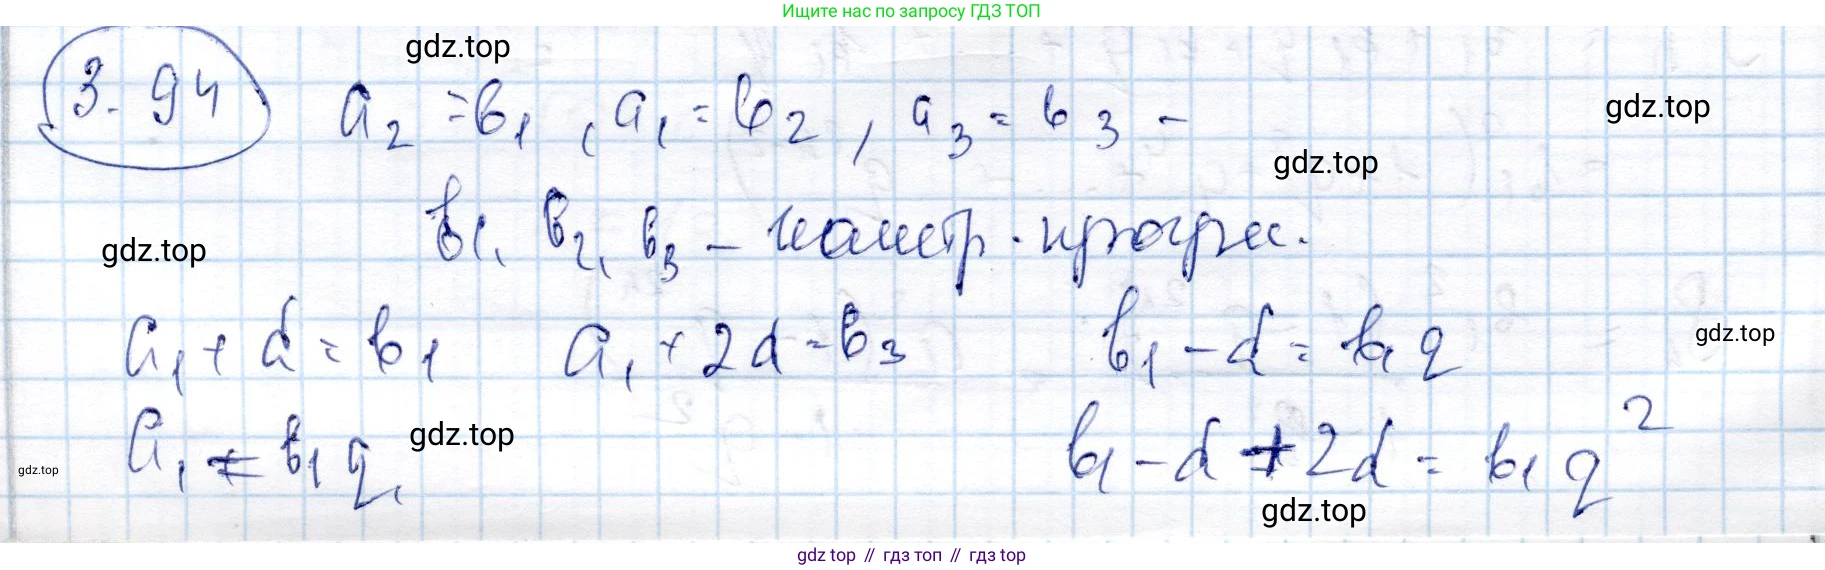 Ищите нас по запросу ГДЗ ТОП
gdz.top
3.94 a₂ = b₁, a₁ = b₂, a₃ = b₃ –
gdz.top
gdz.top
b₁, b₂, b₃ – геометр. прогрес.
gdz.top
a₁ + d = b₁ a₁ + 2d = b₃ b₁ – d = b₁q
gdz.top
a₁ = b₁q, b₁ – d + 2d = b₁q²
gdz.top
gdz.top
gdz.top
gdz top // гдз топ // gdz top